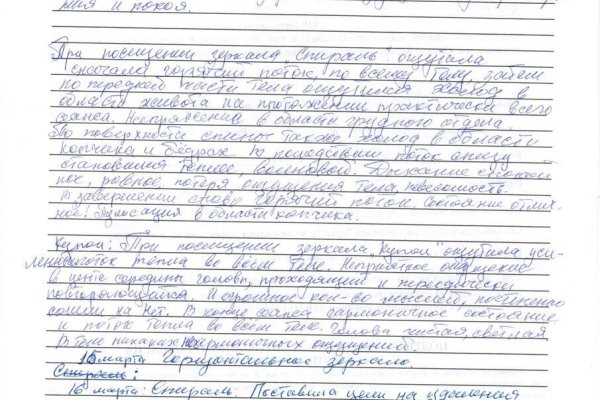 ния и покоя.
При посещении зеркала "Спираль" ощутила
сначала горячий поток, по всему телу, затем
по передней части тела ощущался холод в
области живота на протяжении практически всего
сеанса. Напряжение в области грудного отдела.
По поверхности спины также холод в области
копчика и бёдрах. В последствии поток снизу
становился теплее, волновой. Дыхание спокой
ное, ровное, потеря ощущения тела, невесомость.
В завершении снова горячий поток. Состояние отлич-
ное. Пульсация в области копчика.
Купол: При посещении зеркала "Купол" ощутила уси-
ление поток тепла во всём теле. Неприятное ощущение
в центре середины головы, проходящий и периодически
повторяющийся. И огромное кол-во мыслей, постепенно
сошли на нет. В конце сеанса гармоничное состояние
и поток тепла во всём теле. Голова чистая, светлая,
В теле никаких негармоничных ощущений.
15 марта Горизонтальное зеркало.
Спираль:
16 марта: Спираль. Поставила цели на удаления